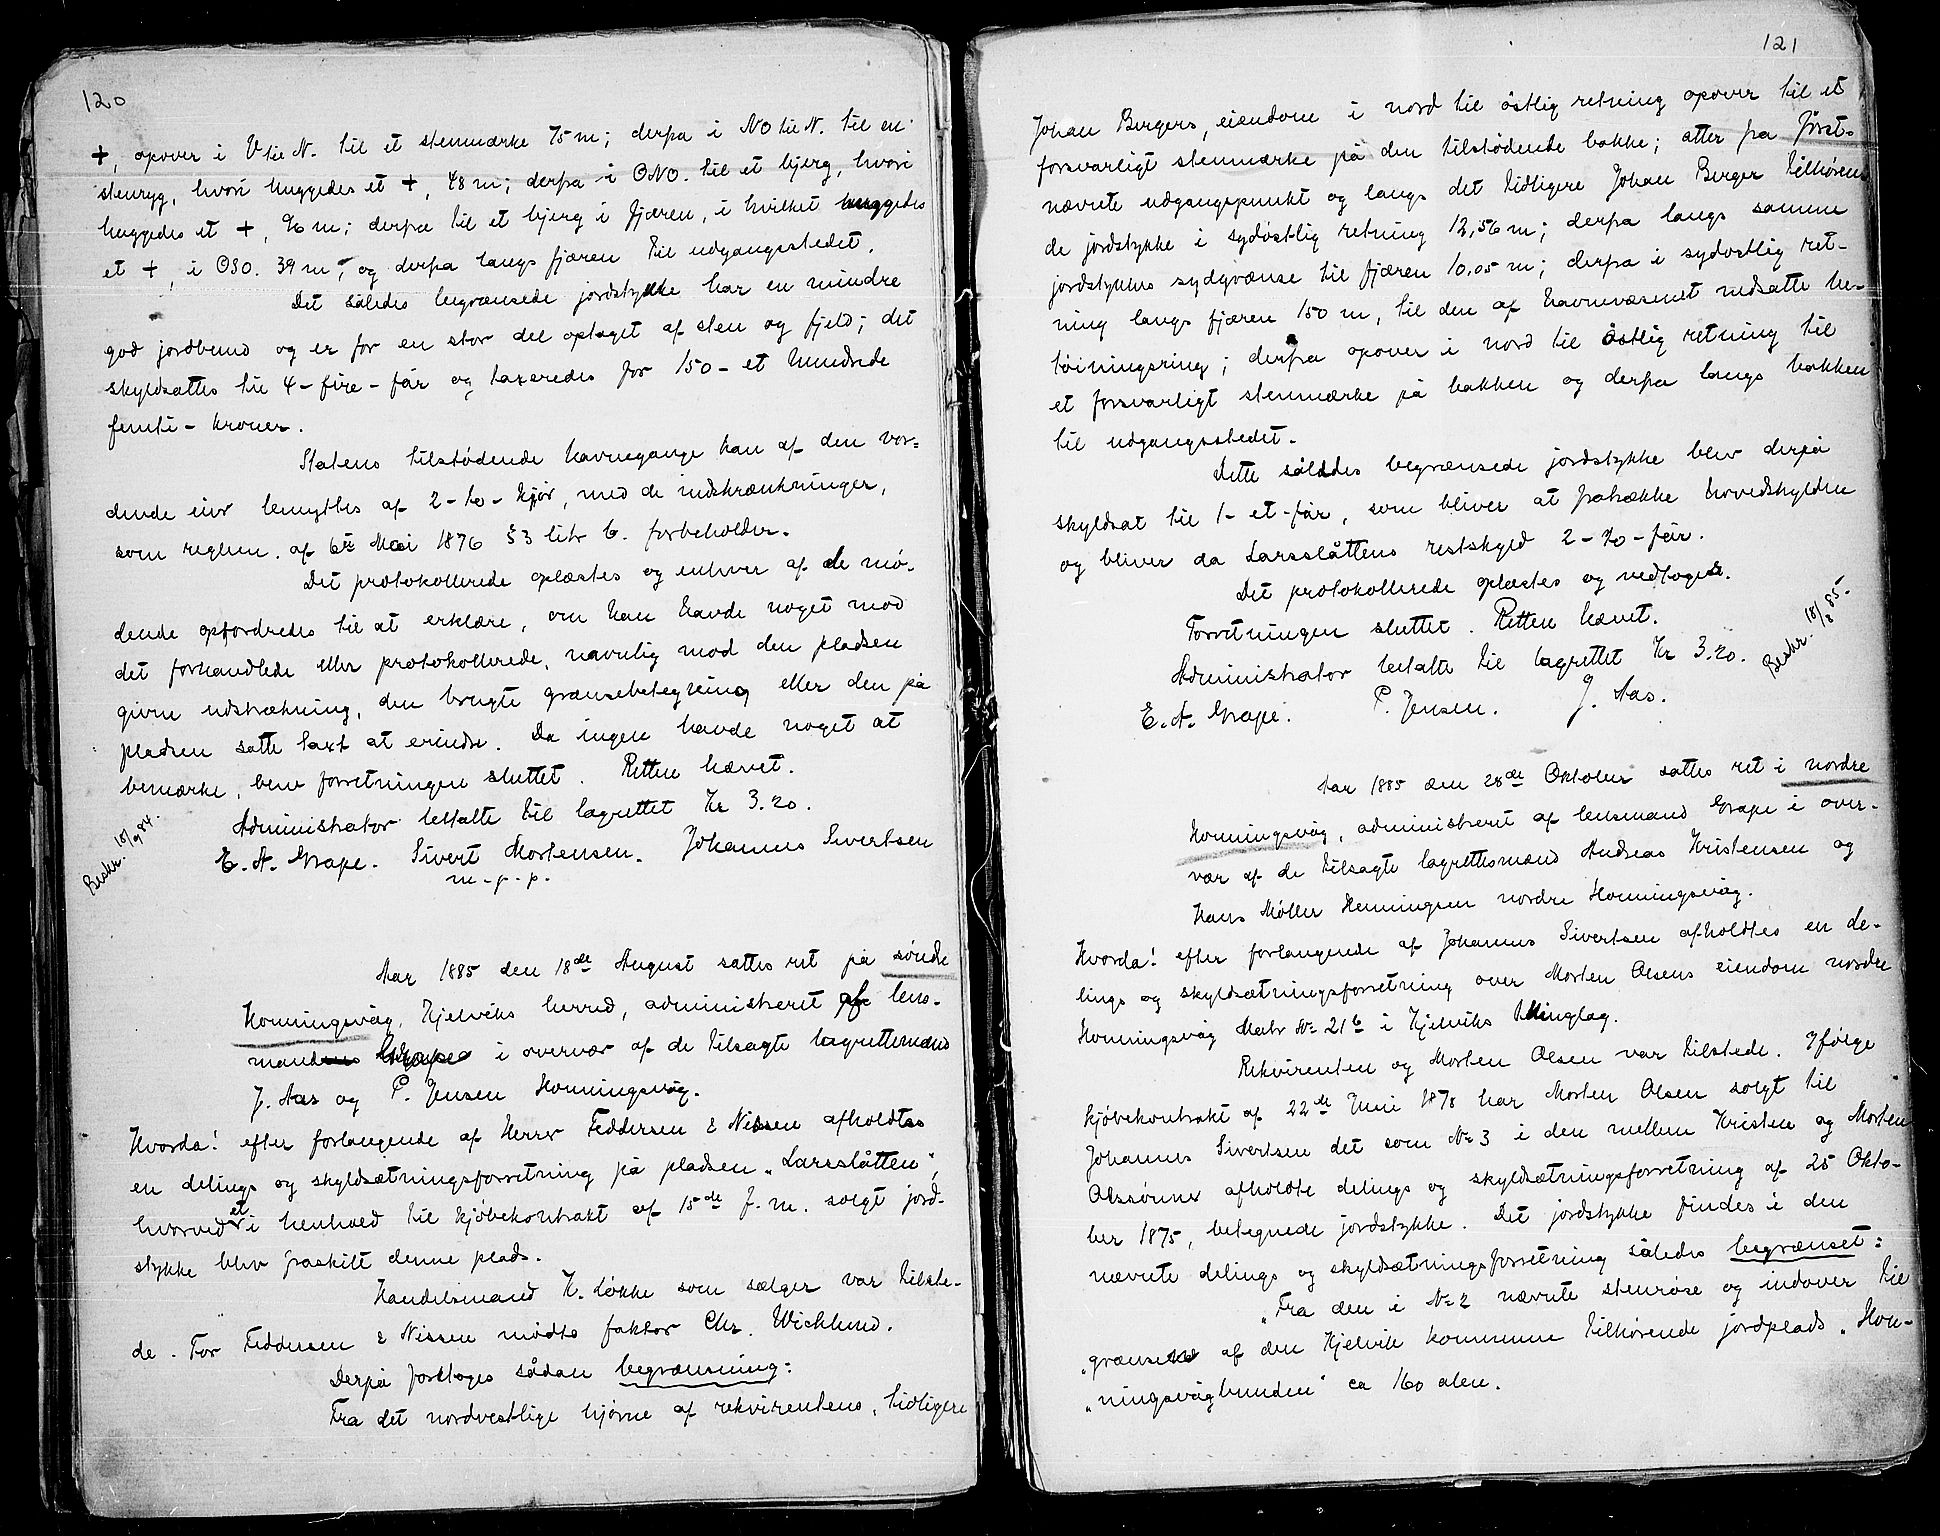 120
+, opover i V til N. til et stenmærke 75 m; derpa i NO til N. til en
stenryg, hvori huggedes et +, 48 m; derpa i ONO. til et bjerg, hvori
huggedes et +, 96 m; derpa til et bjerg i fjæren, i hvilket huggedes
et +, i OSO. 39 m, og derpa langs fjæren til udgangsstedet.
Det således begrænsede jordstykke har en mindre
god jordbund og er for en stor del optaget af sten og fjeld; det
skyldsattes til 4 - fire - får og taxeredes for 150 - et hundrede
femti - kroner.
Statens tilstødende havnegange kan af den vor=
dende eier benyttes af 2 - to - kjør, med de indskrænkninger,
som reglem. af 6te Mai 1876 § 3 litr b. forbeholder.
Det protokollerede oplæstes og enhver af de mø-
dende opfordredes til at erklære, om han havde noget mod
det forhandlede eller protokollerede, navnlig mod den pladsen
givne udstrækning, den brugte grænsebetegning eller den på
pladsen satte taxt at erindre. Da ingen havde noget at
bemærke, blev forretningen sluttet. Retten hævet.
Administrator betalte til lagrettet Kr 3.20.
E. A. Grape. Sivert Mortensen. Johannes Sivertsen
m. p. p.
Beskr. 10/9 84.
Aar 1885 den 18de August sattes ret på søndre
Honningsvåg, Kjelviks herred, administreret af lens-
mand Grape i overvær af de tilsagte lagrettemænd
J. Aas og P. Jensen Honningsvåg.
Hvorda! efter forlangende af Herrer Feddersen & Nissen afholdtes
en delings og skyldsætningsforretning på pladsen "Larsslåtten",
hvorved et i henhold til kjøbekontrakt af 15de f. m. solgt jord-
stykke blev fraskilt denne plads.
Handelsmand K. Løkke som sælger var tilste-
de. For Feddersen & Nissen mødte faktor Chr. Wicklund.
Derpå foretoges sådan begrænsning:
Fra det nordvestlige hjørne af rekvirentens, tidligere
121
Johan Bergers, eiendom i nord til østlig retning opover til et
forsvarligt stenmærke på den tilstødende bakke; atter fra først-
nævnte udgangspunkt og langs det tidligere Johan Berger tilhøren
de jordstykke i sydostlig retning 12,56 m; derpa langs samme
jordstykkes sydgrænse til fjæren 10,05 m; derpa i sydostlig ret-
ning langs fjæren 150 m, til den af havnevæsenet nedsatte be-
tøiningsring; derpa opover i nord til østlig retning til
et forsvarligt stenmærke på bakken og derpa langs bakken
til udgangsstedet.
Dette således begrænsede jordstykke blev derpå
skyldsat til 1 - et - får, som bliver at fratrække hovedskylden
og bliver da Larsslåttens restskyld 2 - to - får.
Det protokollerede oplæstes og vedtoges.
Forretningen sluttet. Retten hævet.
Administrator betalte til lagrettet Kr 3.20.
E. A. Grape. P. Jensen. J. Aas.
Beskr. 18/8 85.
Aar 1885 den 28de Oktober sattes ret i nordre
Honningsvåg, administreret af lensmand Grape i over-
vær af de tilsagte lagrettesmænd Andreas Kristensen og
Hans Møller Henningsen nordre Honningsvåg.
Hvorda! efter forlangende af Johannes Sivertsen afholdtes en de-
lings og skyldsætningsforretning over Morten Olsens eiendom nordre
Honningsvåg Matr No 21b i Kjelviks thinglag.
Rekvirenten og Morten Olsen var tilstede. Ifølge
kjøbekontrakt af 22de Juni 1878 har Morten Olsen solgt til
Johannes Sivertsen det som No 3 i den mellem Kristen og Morten
Olssønner afholdte delings og skyldsætningsforretning af 25 Okto-
ber 1875, betegnede jordstykke. Det jordstykke findes i den
nævnte delings og skyldsætningsforretning således begrænset:
"Fra den i No 2 nævnte stenrøse og indover til
"grænsene af den Kjelvik kommune tilhørende jordplads "Hon-
"ningsvågbunden" ca 160 alen.